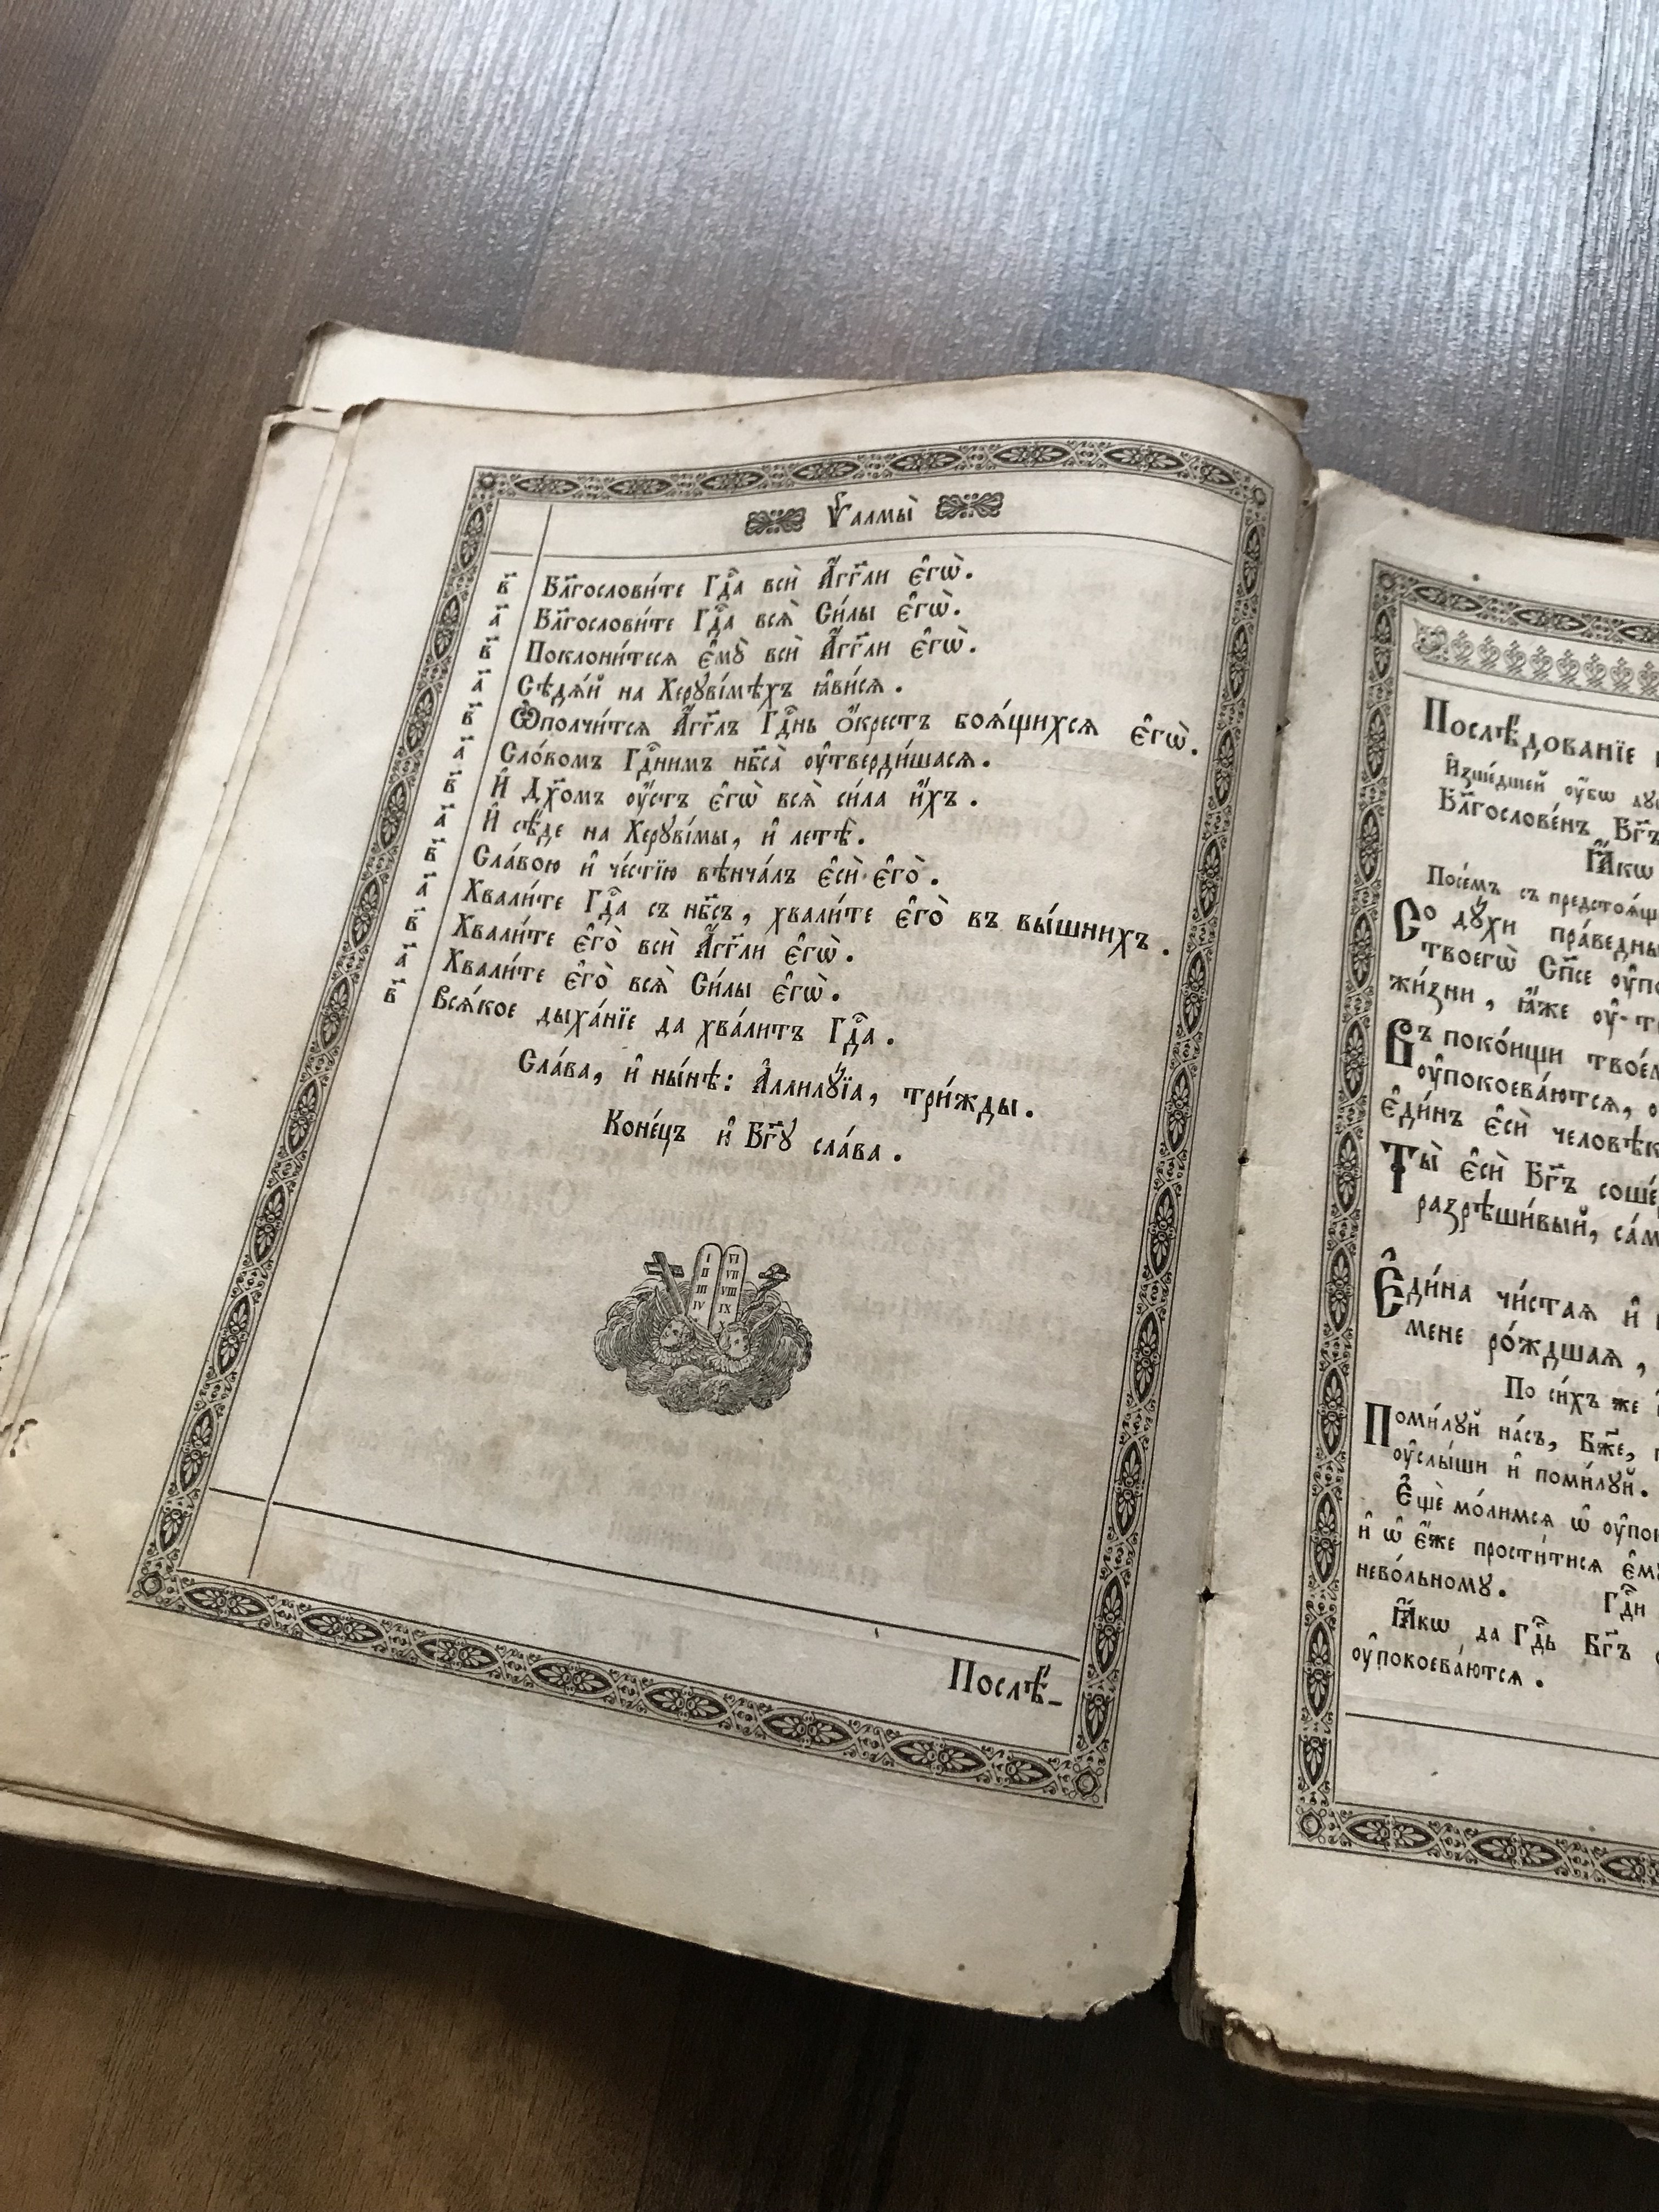 Ѱалмы̀
в҃ Бл҃гослови́те Гдⷭ҇а всѝ А҆́гг҃ли є҆гѡ̀.
а҃ Бл҃гослови́те Гдⷭ҇а всѧ̀ Си́лы є҆гѡ̀.
в҃ Поклони́тесѧ є҆мꙋ̀ всѝ А҆́гг҃ли є҆гѡ̀.
а҃ Сѣдѧ́й на Херꙋві́мѣхъ ꙗ҆ви́сѧ.
в҃ Ѡ҆полчи́тсѧ А҆́гг҃лъ Гдⷭ҇нь ѻ҆́крестъ боѧ́щихсѧ є҆гѡ̀.
а҃ Сло́вомъ Гдⷭ҇нимъ нб҃са̀ ᲂу҆тверди́шасѧ.
в҃ И҆ Дх҃омъ ᲂу҆́стъ є҆гѡ̀ всѧ̀ си́ла и҆́хъ.
а҃ И҆ сѣ́де на Херꙋві́мы, и҆ летѣ̀.
в҃ Сла́вою и҆ че́стїю вѣнча́лъ є҆сѝ є҆го̀.
а҃ Хвали́те Гдⷭ҇а съ нб҃съ, хвали́те є҆го̀ въ вы́шнихъ.
в҃ Хвали́те є҆го̀ всѝ А҆́гг҃ли є҆гѡ̀.
а҃ Хвали́те є҆го̀ всѧ̀ Си́лы є҆гѡ̀.
в҃ Всѧ́кое дыха́нїе да хва́литъ Гдⷭ҇а.
Сла́ва, и҆ ны́нѣ: А҆ллилꙋ́їа, три́жды.
Коне́цъ и҆ Бг҃ꙋ сла́ва.
I VI
II VII
III VIII
IV IX
X
Послѣ́-
Послѣ́дованїе
И҆зше́дшей ᲂу҆́бѡ
Бл҃гослове́нъ Бг҃ъ
Ꙗ҆́кѡ
Посе́мъ съ
Со дꙋ́хи пра́ведны
твоегѡ̀ Сп҃се
жи́зни, ꙗ҆́же ᲂу҆
Въ поко́ищи
ᲂу҆покоева́ютсѧ,
є҆ди́нъ є҆сѝ
Ты̀ є҆сѝ Бг҃ъ
разрѣши́вый,
Є҆ди́на чи́стаѧ и҆
мене ро́ждшаѧ,
По си́хъ же
Поми́лꙋй на́съ, Бж҃е,
ᲂу҆слы́ши и҆ поми́лꙋй.
Є҆щѐ мо́лимсѧ ѡ҆
и҆ ѡ҆ є҆́же прости́тисѧ
нево́льномꙋ. Гдⷭ҇и
Ꙗ҆́кѡ да Гдⷭ҇ь Бг҃ъ
ᲂу҆покоева́ютсѧ.